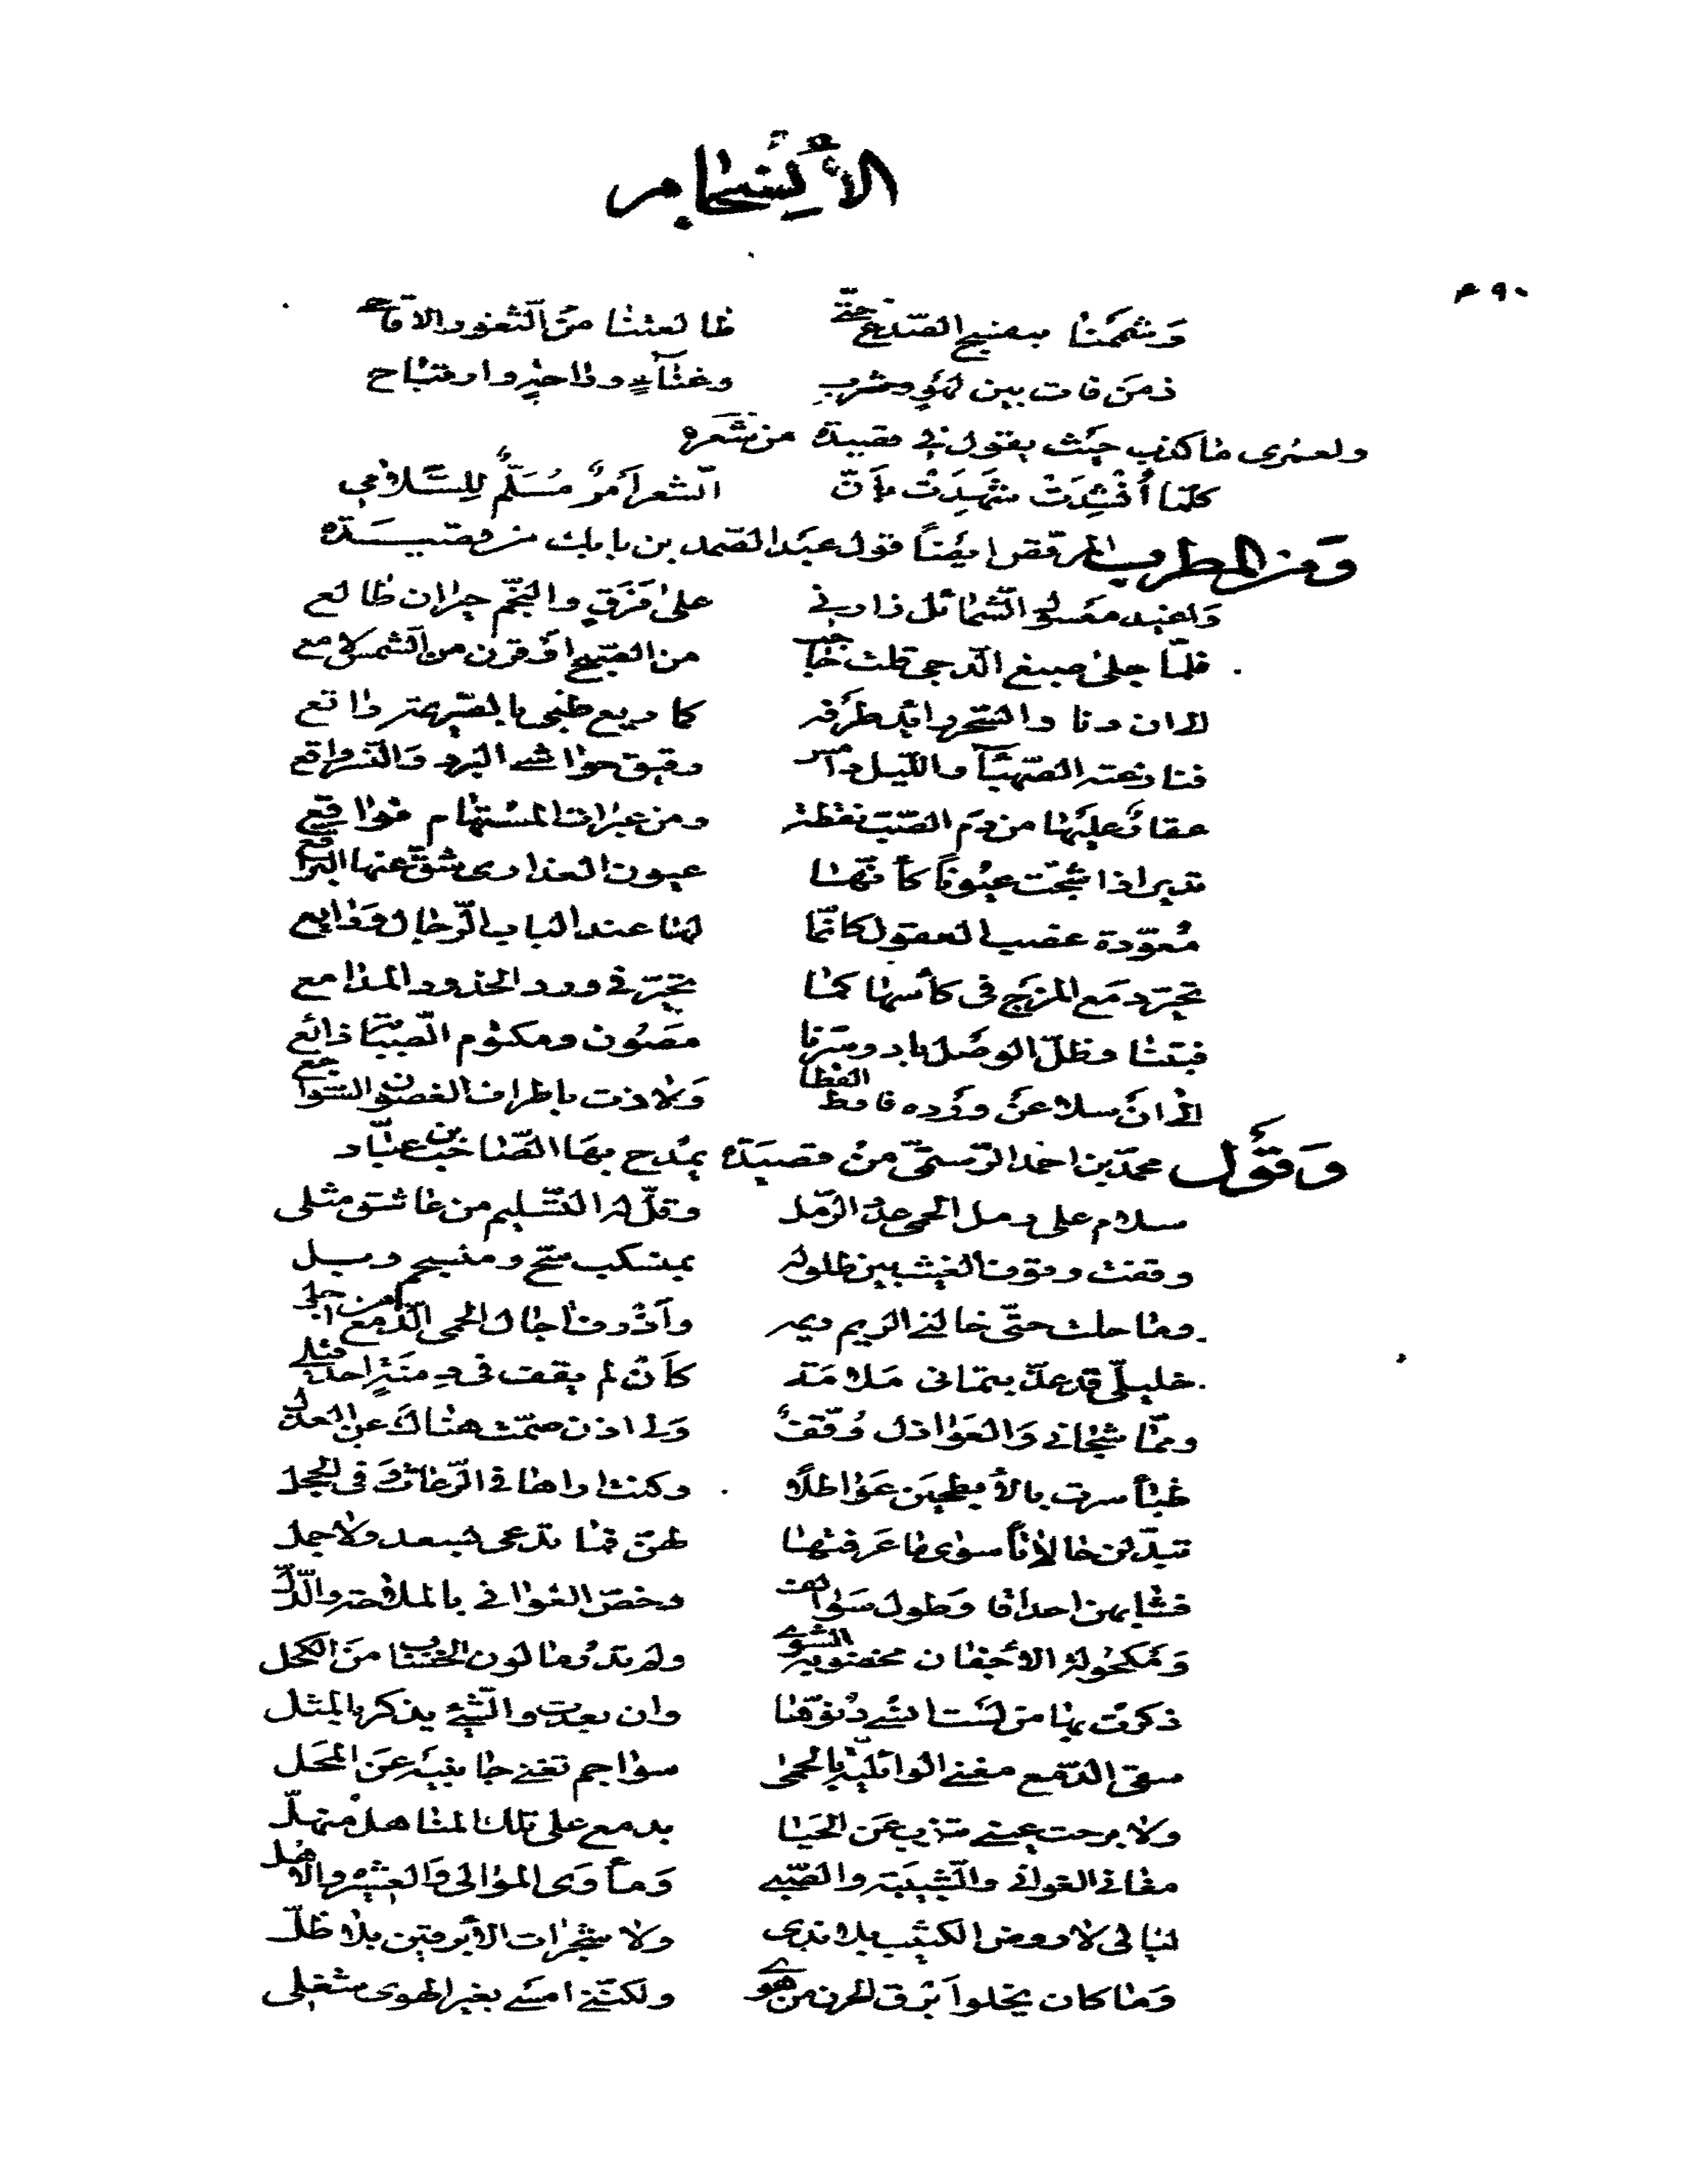 الانسجام
٤٩٠
وشممنا ببنفسج الصدغ حتى طالعتنا من الثغور الأقاحى
زمن فات بين لهو وشرب وغناء وراحة وارتياح
ولعمرى ما كذب حيث يقول فى قصيدة من شعره
كلما أُنْشِدَتْ شَهِدَتْ بأَنّ الشعر أَمرٌ مُسَلَّمٌ لِلسَّلامى
وَمن المطرب المرقص ايضاً قول عبد الصمد بن بابك من قصيدة
وَاغيد معسول الشمائل زارنى على فَرَقٍ والنجم حيران طالع
فلمّا جلى صبغ الدجى قلت حاجب من الصبح أو قرن من الشمس لامع
الى ان دنا والسحر رائد طرفه كما ريع ظبى بالصريمة راتع
فنازعته الصهباء والليل دامس رقيق حواشى البرد وَالنسر واقع
عقار عليها من دم الصب نفطة ومن عبرات المستهام فواقع
تدير اذا شجّت عيوناً كأنّها عيون العذارى شق عنها البراقع
مُعوّدة غصب العقول كانّما لها عند الباب الرّجال ودايع
تحيّر دمع المزج فى كأسها كما تحيّر فى ورد الخدود المدامع
فبتنا وظلّ الوصل باد وسرّنا مصون ومكتوم الصبابة ذائع
الى ان سلا عن ورده فارط القطا وَلاذت باطراف الغصون السّواجع
وَقول محمّد بن احمد الرّستمىّ من قصيدة يمدح بها الصّاحب بن عبّاد
سلام على رمل الحمى عدد الرّمل وقلّ له التّسليم من عاشق مثلى
وقفت وقوف الغيث بين طلوله بمنسكب سحّ ومنسجم وبل
وما حلت حتّى خالنى الريم ريمه وأذرت اجال الحمى الدّمع من اجلى
خليلىّ قد عذّبتمانى مَلامَة كأن لم يقف فى دِمنَةٍ احد قبلى
وممّا شجانى وَالعَواذل وُقّفٌ وَلى اذن صمّت هناك عن العذل
ظباء سرت بالأبطحين عَواطلاً وكنت اراها فى الرّعاث وَفى الحجل
تبدّلن حالاً سوى ما عَرفتها لهنّ فما تدعى بسعد ولا جمل
فشابهن احداقا وَطول سَوالف وخصّ الغوانى بالملاحة والدّلّ
وَمكحولة الأجفان مخضوبة الشوى ولم تدر ما لون الخضاب من الكحل
ذكرت بها من لست انسى دُنوّها وان بعدت والشّىء يذكر بالمثل
سقى الدّمع مغنى الوائليّة بالحمى سواجم تغنى جانبيه عن المحل
ولا برحت عينى تنوب عَن الحَيا بدمع على تلك المناهل منهلّ
مغانى الغوانى والشّبيبة والصّبى وَمأوى الموالى وَالعشيرة والأهل
ليالى لا روض الكثيب بلا ندى ولا شجرات الأبرقين بلا ظلّ
وَما كان يخلوا برق الحزن من هوى ولكنّنى امسى بغير الهوى شغلى